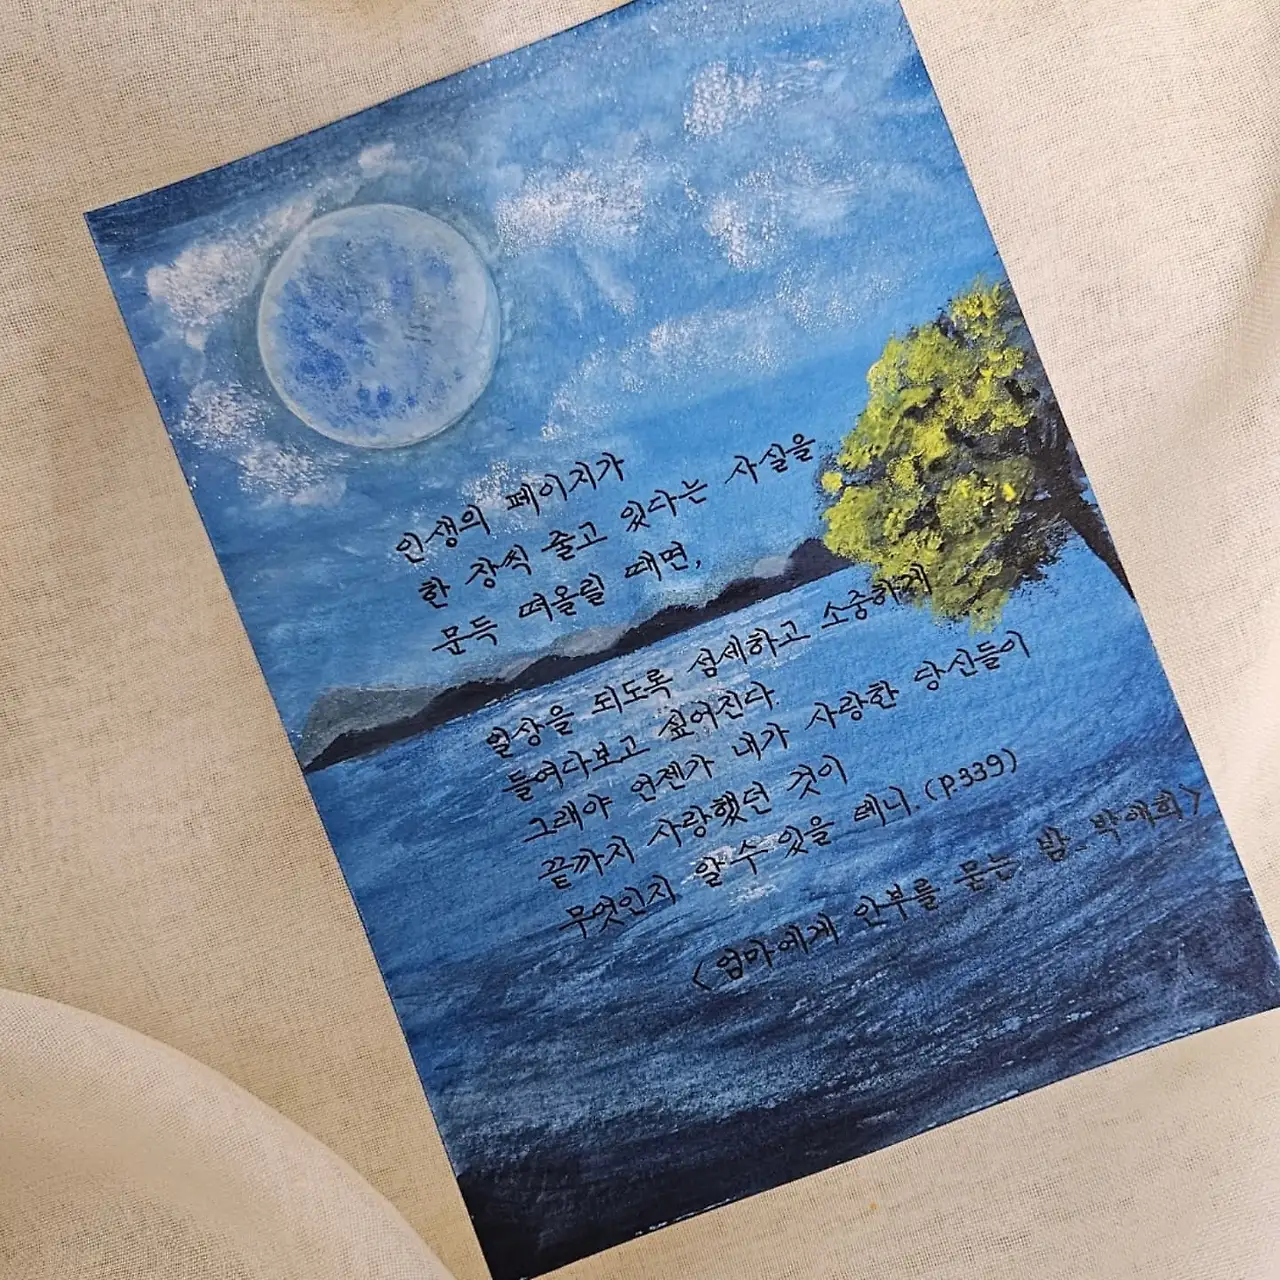 인생의 페이지가
한 장씩 줄고 있다는 사실을
문득 떠올릴 때면,
일상을 되도록 섬세하고 소중하게
들여다보고 싶어진다.
그래야 언젠가 내가 사랑한 당신들이
끝까지 사랑했던 것이
무엇인지 알 수 있을 테니. (p.339)
<엄마에게 안부를 묻는 밤_박애희>